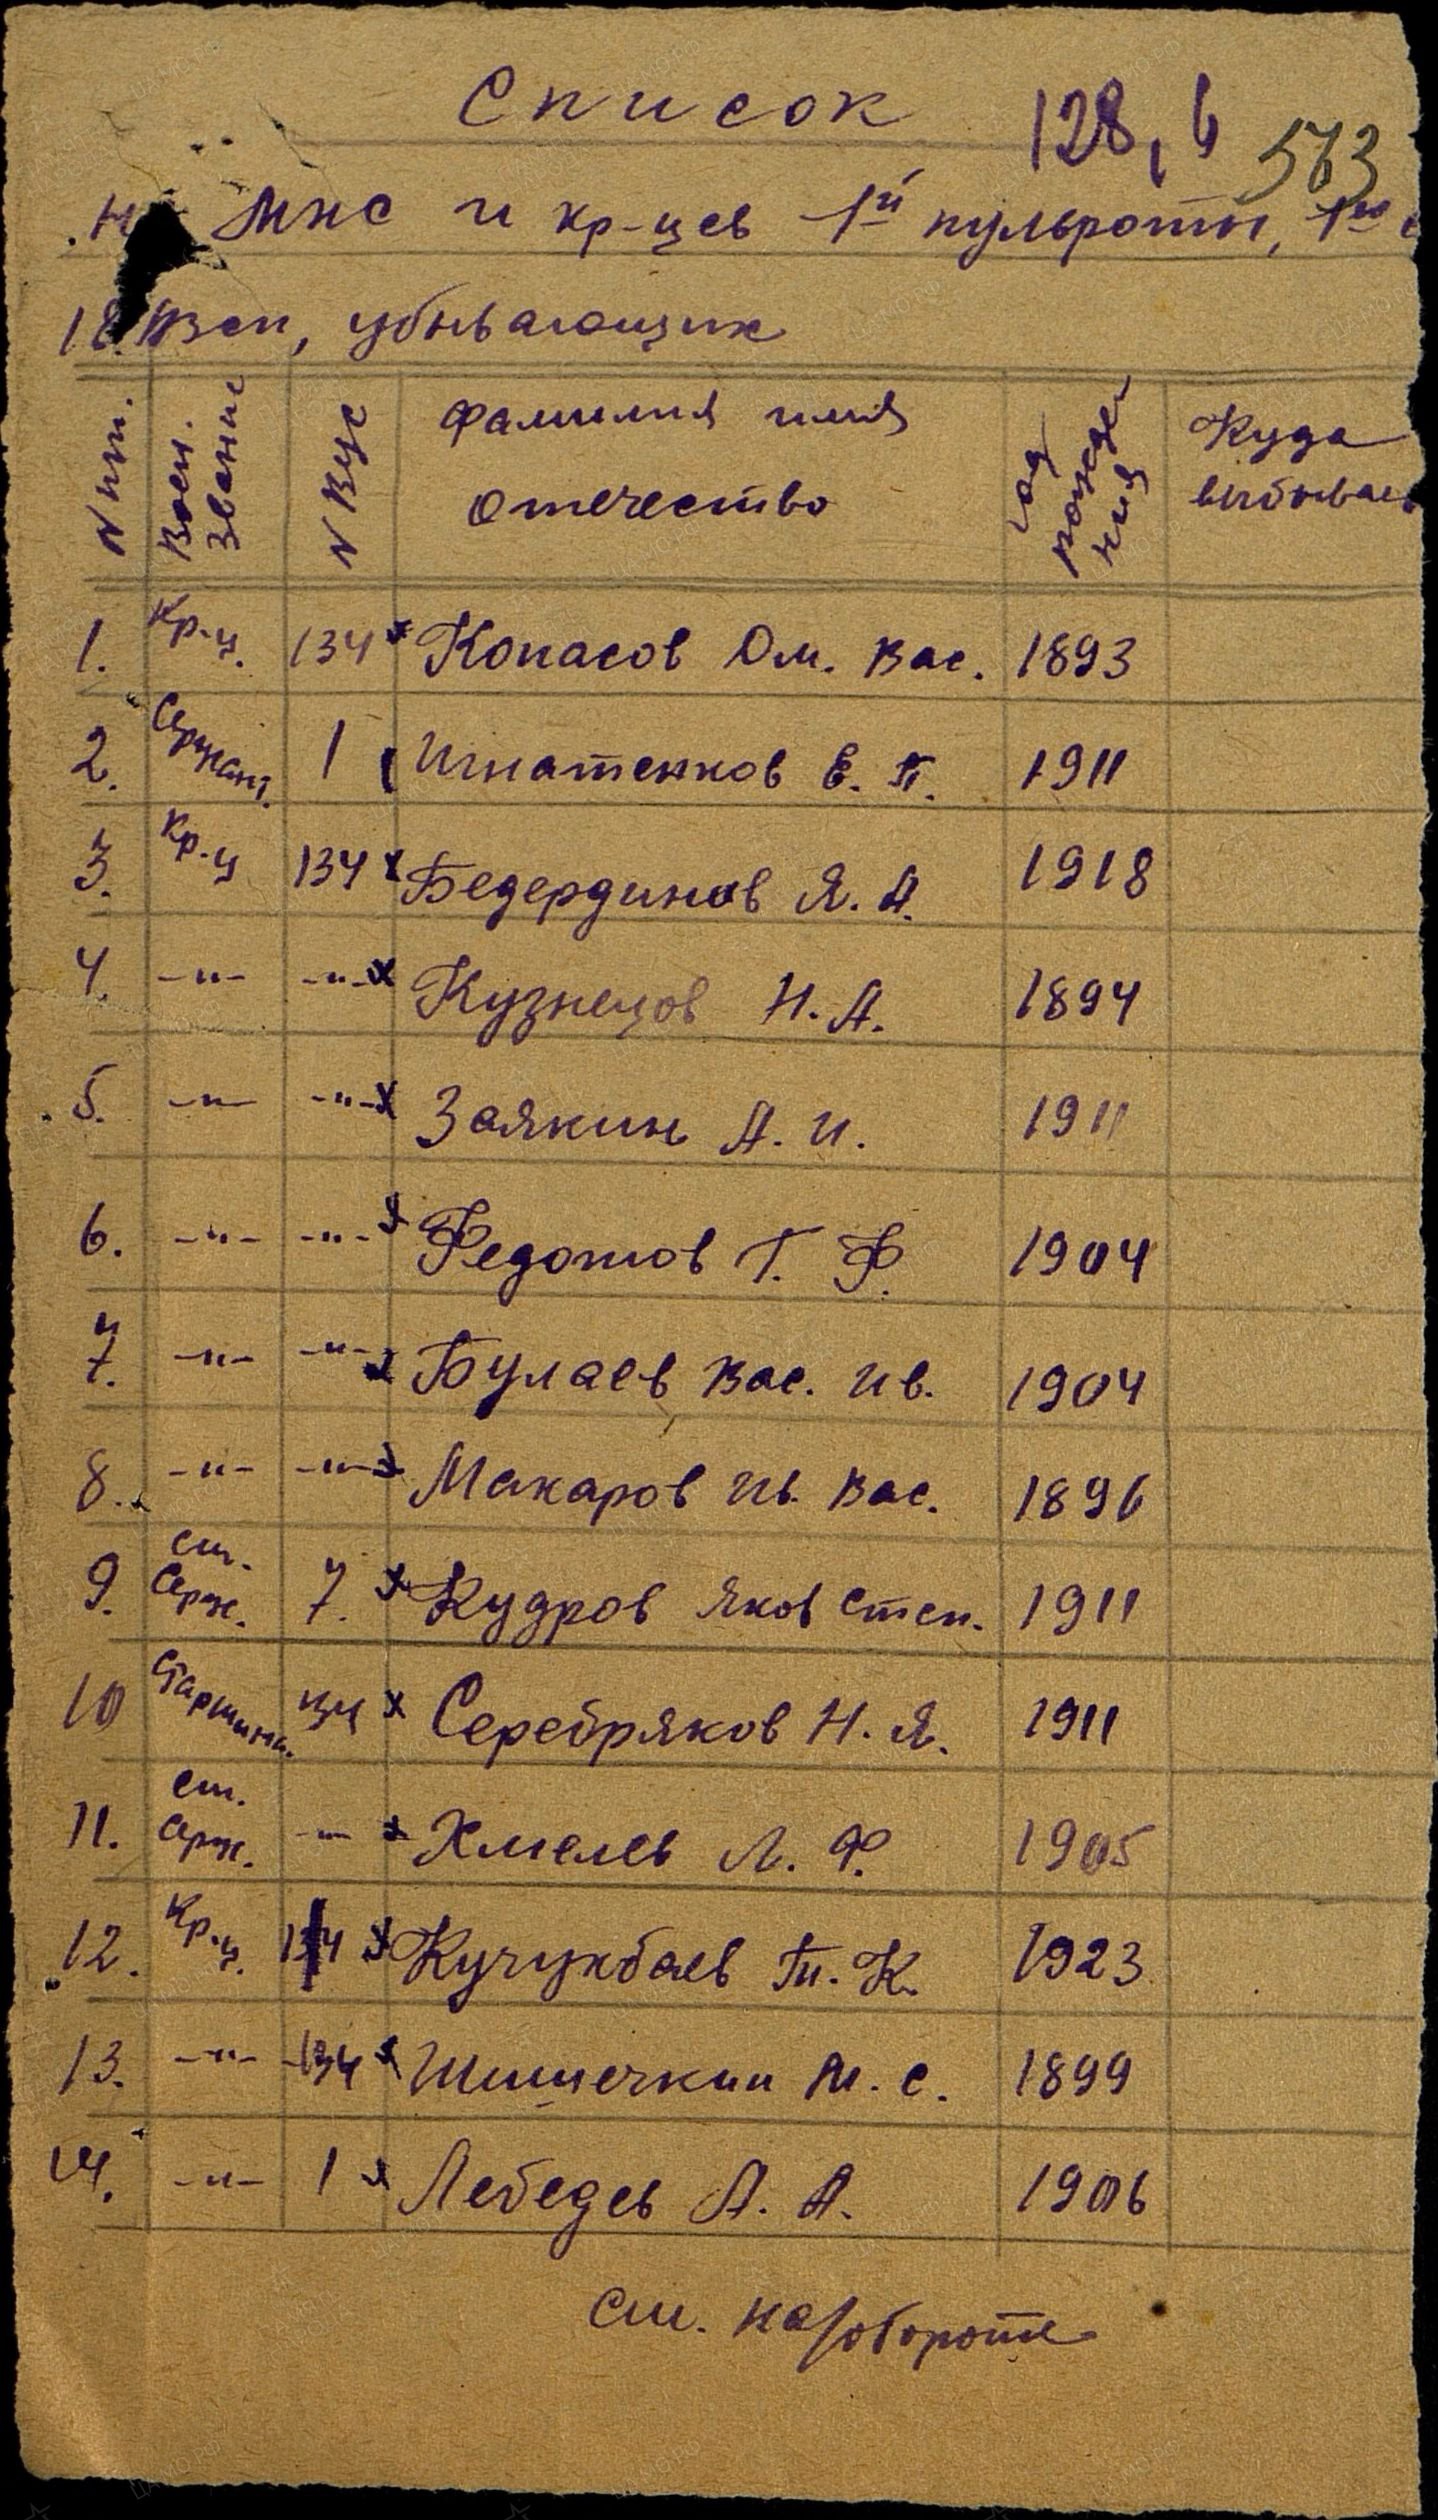 Список
128, 6
563
МНС и кр-цев 1й пульроты, 1го
18 Азсп, убывающих
N пп.
Воен. Звание
N ВУС
Фамилия имя отечество
год рождения
Куда выбывает
1. Кр-ц. 134 х Копасов Дм. Вас. 1893
2. Сержант. 1 Игнатенков Е. П. 1911
3. Кр-ц 134 х Бедердинов Я. А. 1918
4. -"- -"- х Кузнецов Н. А. 1894
5. -"- -"- х Заякин А. И. 1911
6. -"- -"- х Федотов Г. Ф. 1904
7. -"- -"- х Булаев Вас. Ив. 1904
8. -"- -"- х Макаров Ив. Вас. 1896
9. ст. Серж. 7. х Кудров Яков Степ. 1911
10 Старшина. 134 х Серебряков Н. Я. 1911
11. ст. серж. -"- х Хмелев Л. Ф. 1905
12. Кр-ц. 134 х Кучукбаев Т. К. 1923
13. -"- 134 х Шишечкин М. С. 1899
14. -"- 1 х Лебедев А. А. 1906
см. на/обороте